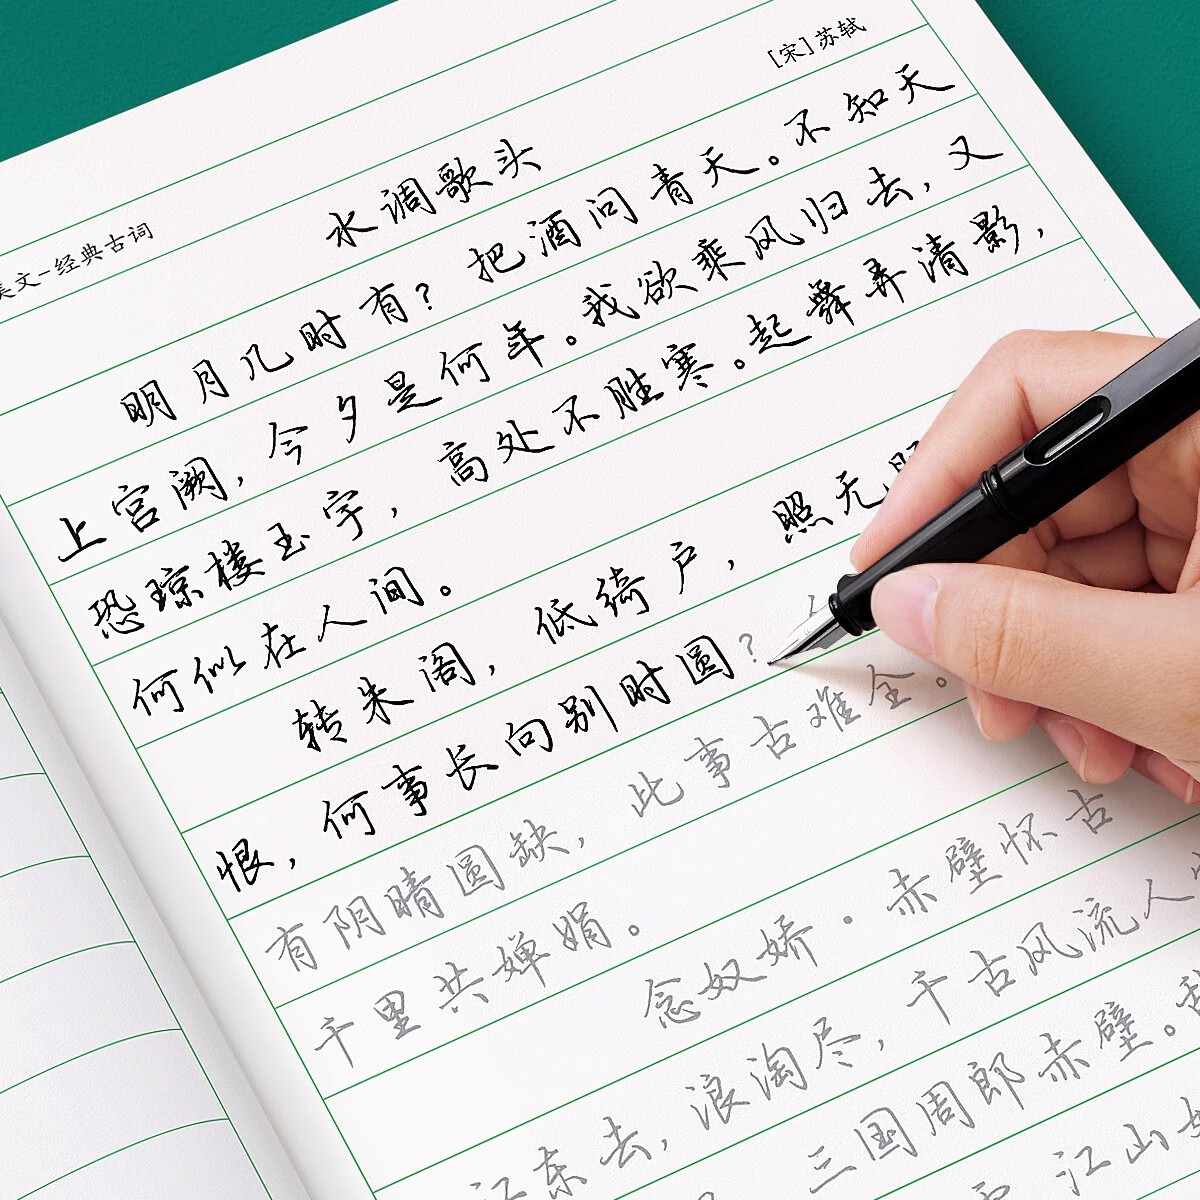 [宋]苏轼
美文-经典古词
水调歌头
明月几时有?把酒问青天。不知天
上宫阙,今夕是何年。我欲乘风归去,又
恐琼楼玉宇,高处不胜寒。起舞弄清影,
何似在人间。
转朱阁,低绮户,照无
恨,何事长向别时圆?
有阴晴圆缺,此事古难全。
千里共婵娟。
念奴娇·赤壁怀古
江东去,浪淘尽,千古风流人
三国周郎赤壁。
江山